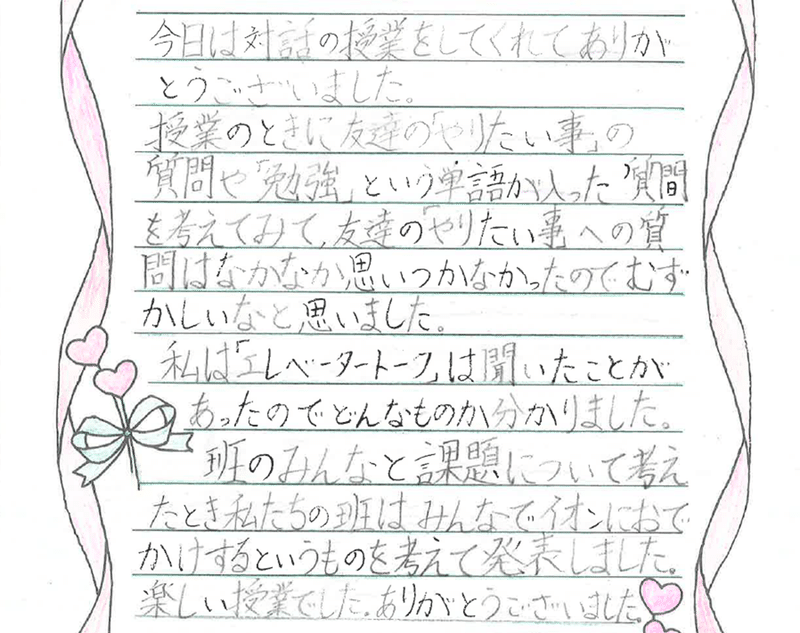 今日は対話の授業をしてくれてありが
とうございました。
授業のときに友達の「やりたい事」の
質問や「勉強」という単語が入った質問
を考えてみて、友達の「やりたい事」への質
問はなかなか思いつかなかったのでむず
かしいなと思いました。
私は「エレベータートーク」は聞いたことが
あったのでどんなものか分かりました。
班のみんなと課題について考え
たとき私たちの班はみんなでイオンにおで
かけするというものを考えて発表しました。
楽しい授業でした。ありがとうございました。